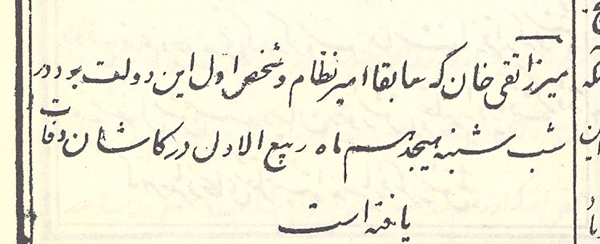 میرزا تقی خان که سابقا امیر نظام و شخص اول این دولت بود در
شب شنبه هیجدهم ماه ربیع الاول در کاشان وفات
یافته است